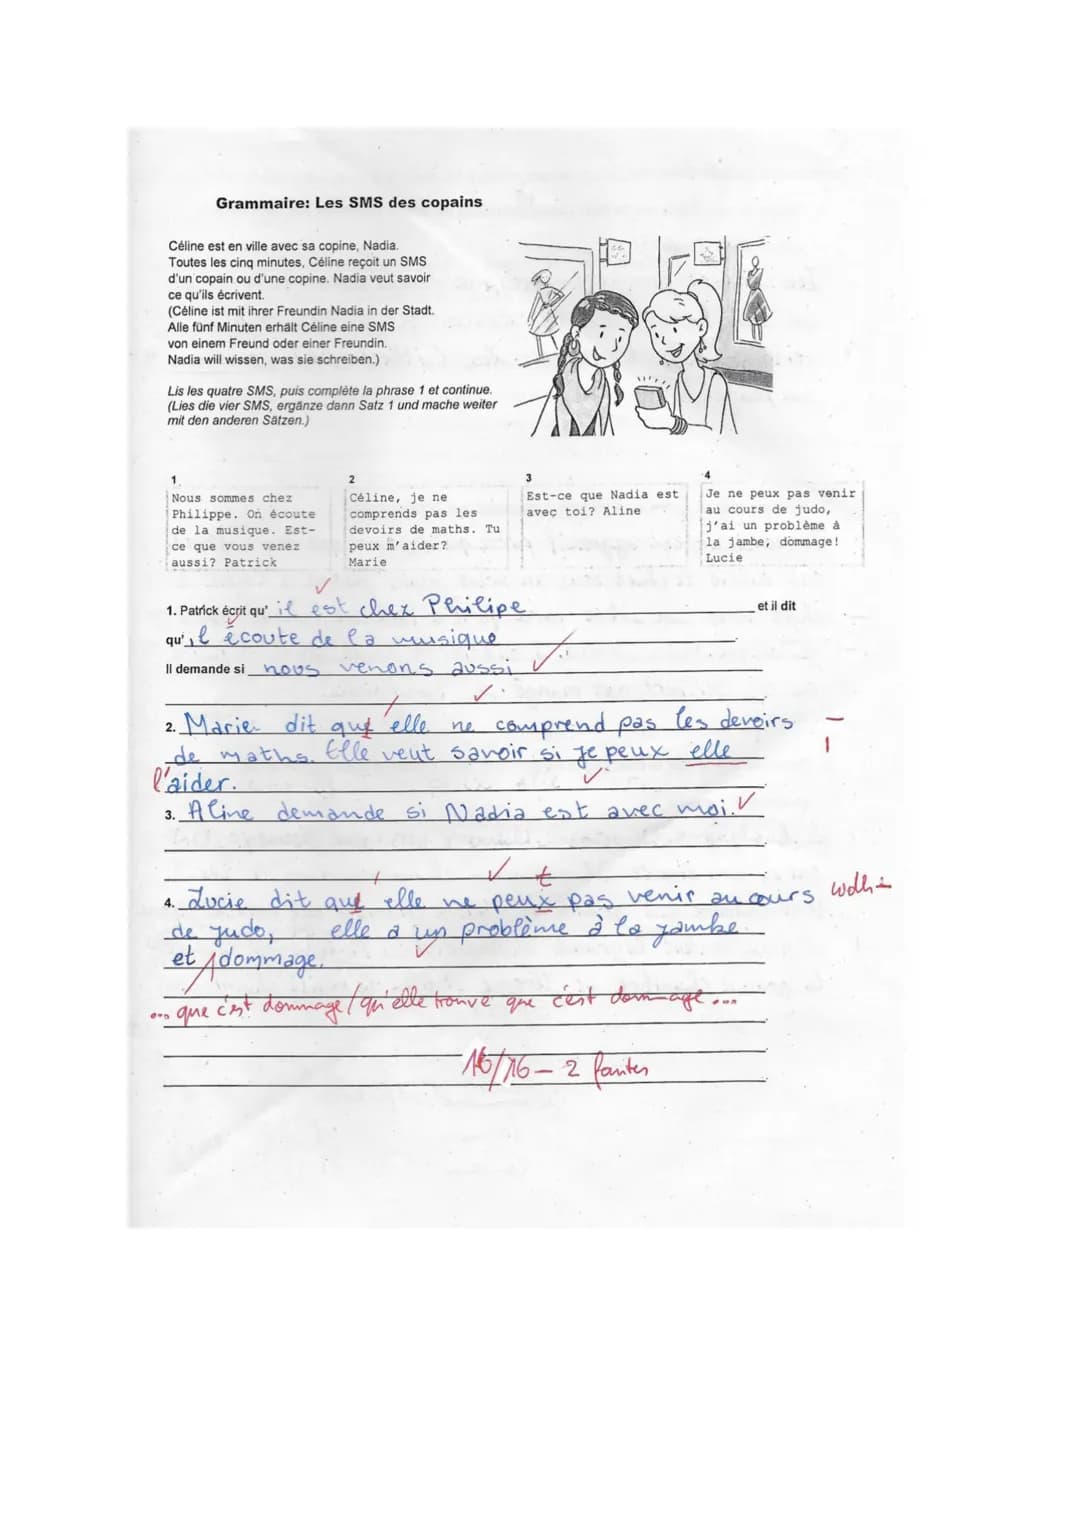 Grammaire: Les SMS des copains
Céline est en ville avec sa copine, Nadia.
Toutes les cinq minutes, Céline reçoit un SMS
d'un copain ou d'une copine. Nadia veut savoir
ce qu'ils écrivent.
(Céline ist mit ihrer Freundin Nadia in der Stadt.
Alle fünf Minuten erhält Céline eine SMS
von einem Freund oder einer Freundin.
Nadia will wissen, was sie schreiben.)
Lis les quatre SMS, puis complète la phrase 1 et continue.
(Lies die vier SMS, ergänze dann Satz 1 und mache weiter
mit den anderen Sätzen.)
1
Nous sommes chez
Philippe. On écoute
de la musique. Est-
ce que vous venez
aussi? Patrick
2
Céline, je ne
comprends pas les
devoirs de maths. Tu
peux m'aider?
Marie
3
Est-ce que Nadia est
avec toi? Aline
4
Je ne peux pas venir
au cours de judo,
j'ai un problème à
la jambe, dommage!
Lucie
1. Patrick écrit qu' il est chez Philipe et il dit
qu'il écoute de la musique
Il demande si nous venons aussi
2. Marie dit que elle ne comprend pas les devoirs
de maths. Elle veut savoir si je peux elle
l'aider.
3. Aline demande si Nadia est avec moi.
t
4. Lucie dit que elle ne peux pas venir au cours wdh
de judo, elle a un problème à la jambe
et dommage.
... que c'est dommage / qu'elle trouve que c'est dommage ...
16/16 - 2 fautes